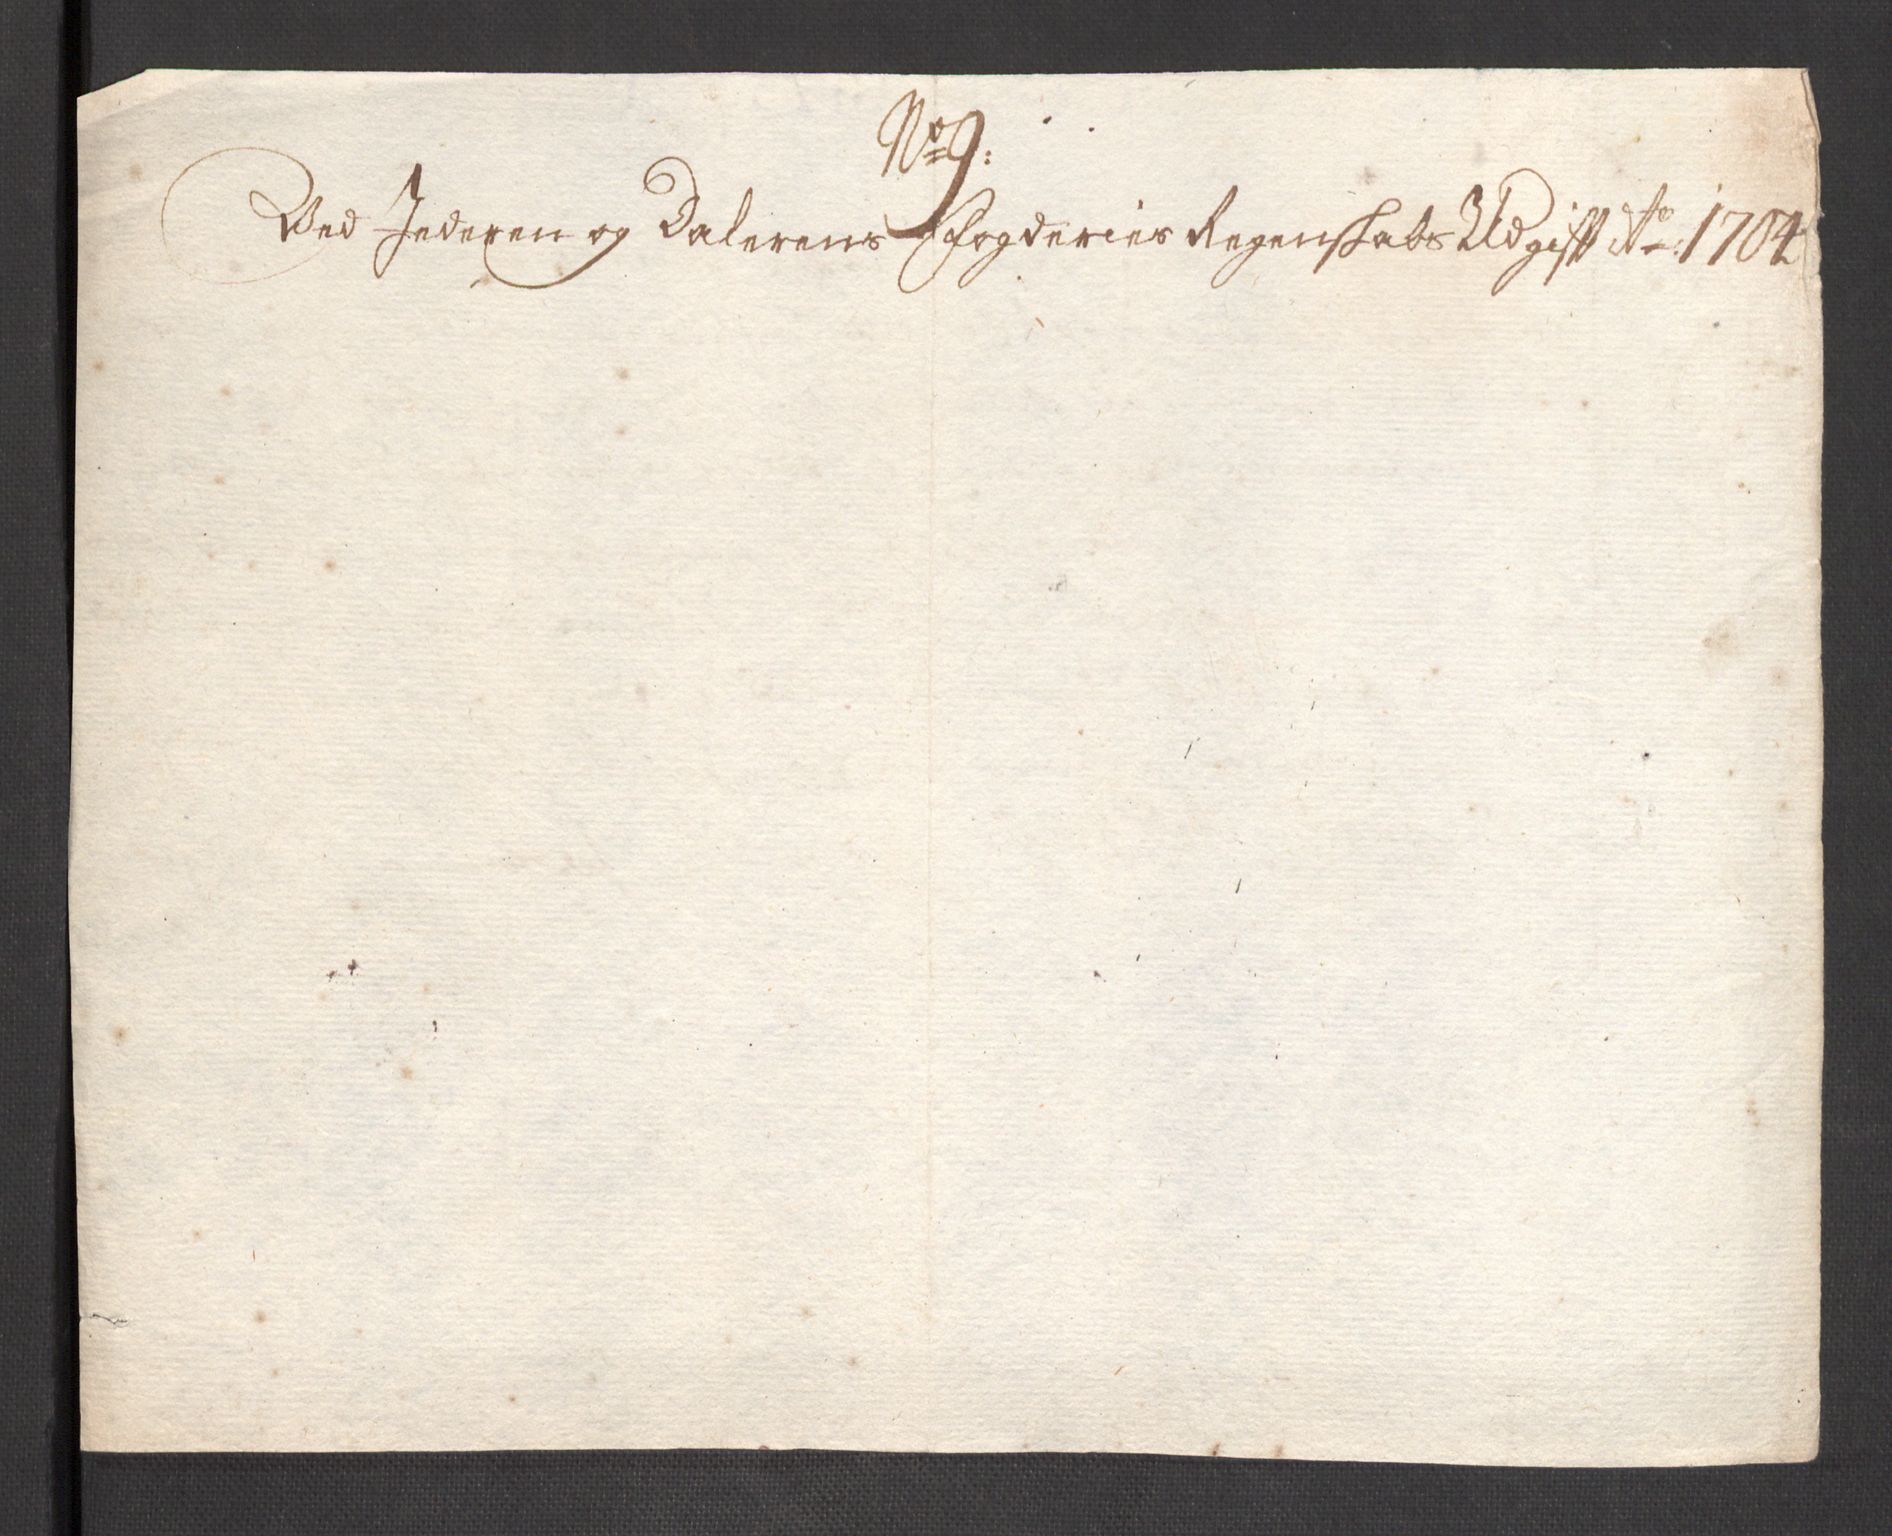 No 9:
Ved Jederen og Dalerens Fogderies Regenskabs Udgift Ao: 1704